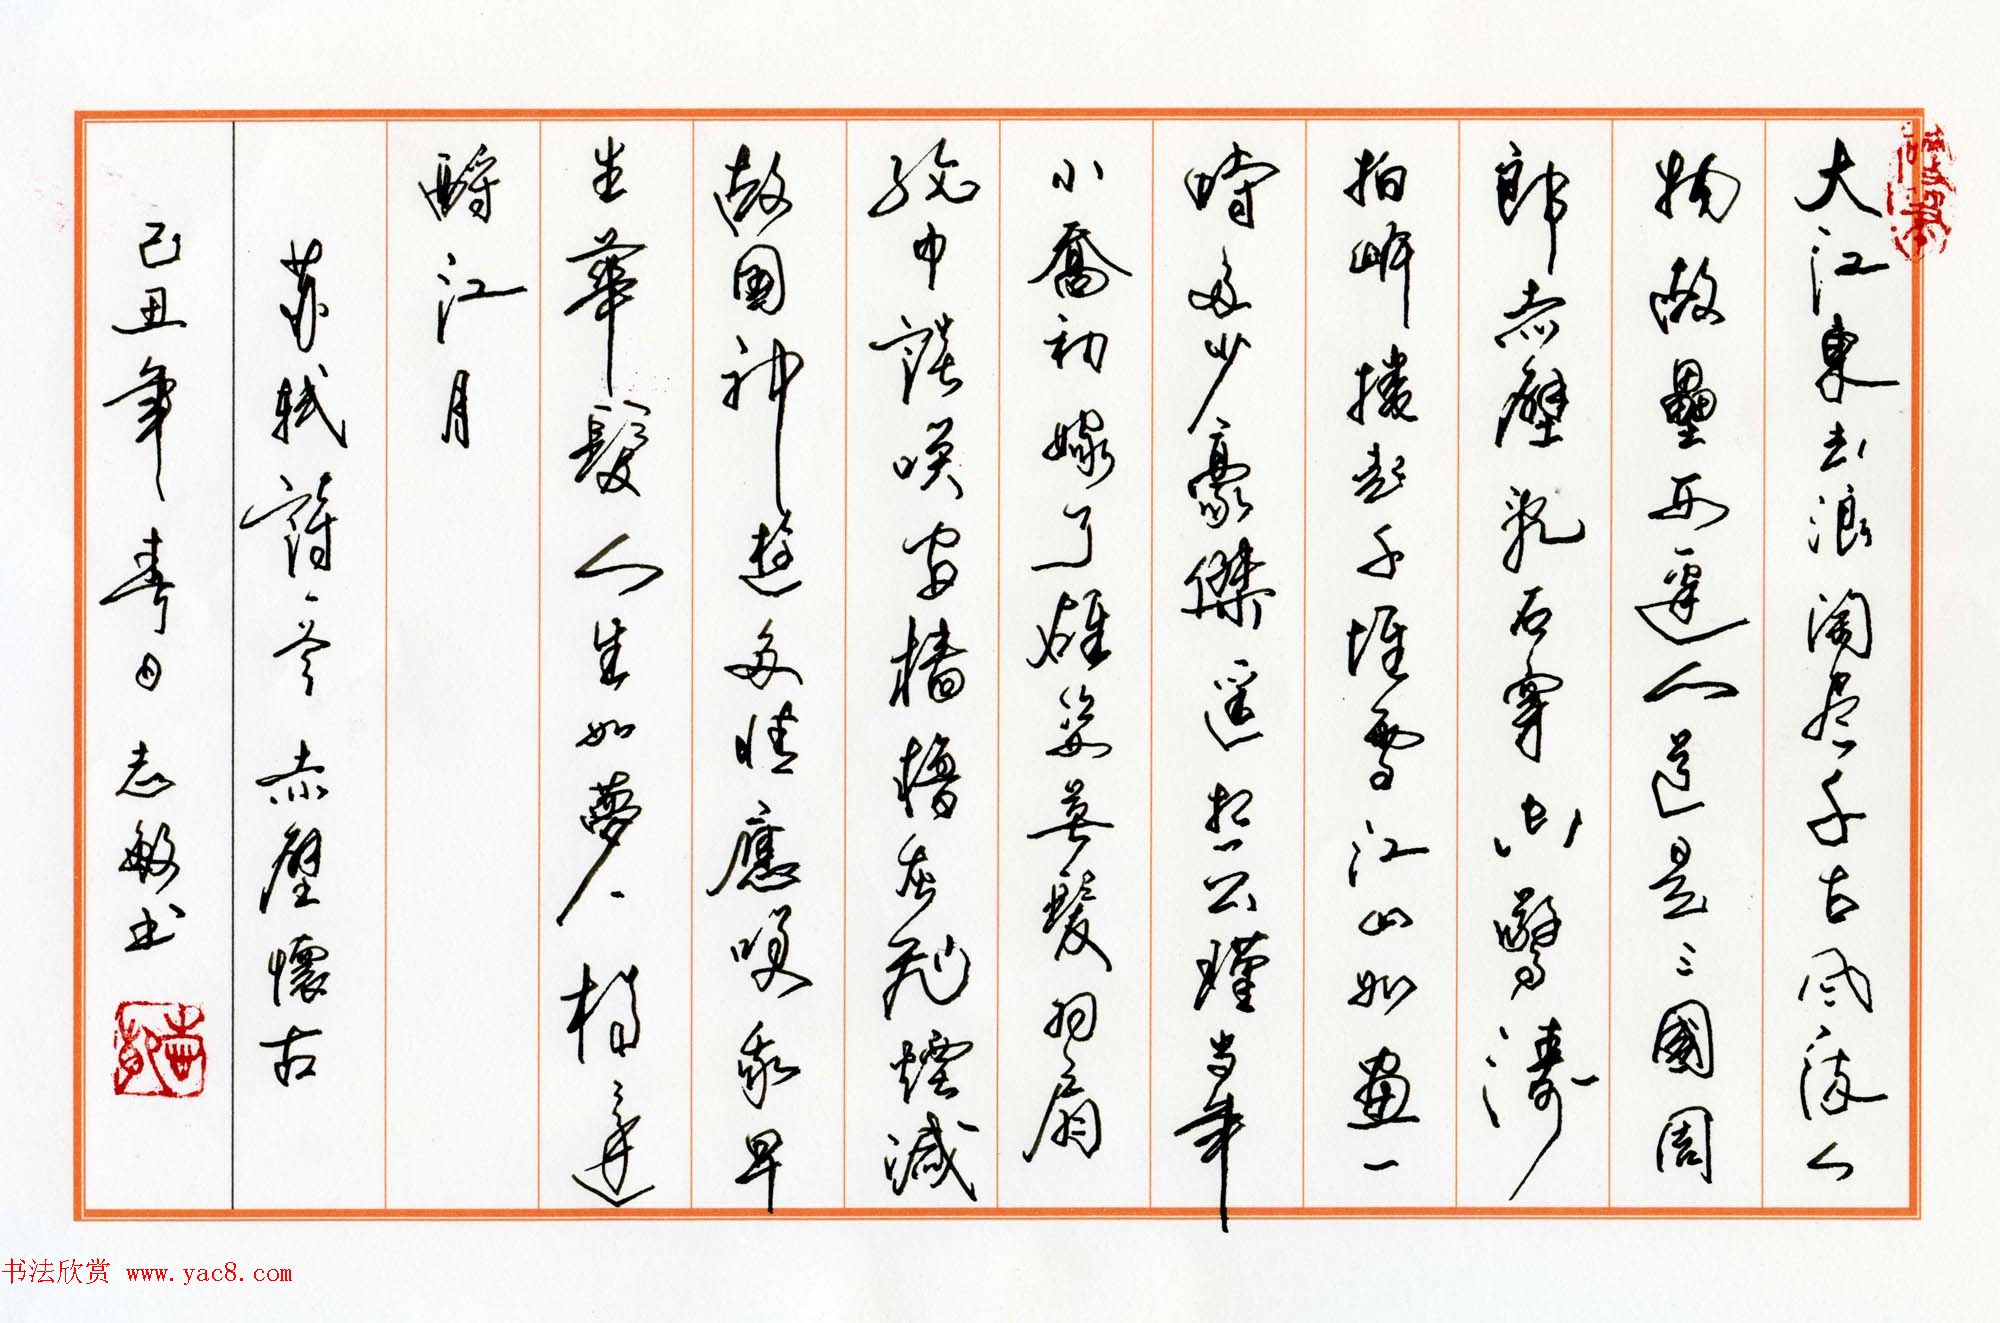 大江東去浪淘尽千古風流人
物故壘西邊人道是三國周
郎赤壁乱石穿空驚濤
拍岸捲起千堆雪江山如畫一
時多少豪傑遥想公瑾当年
小喬初嫁了雄姿英發羽扇
綸巾談笑间檣櫓灰飛煙滅
故國神遊多情應笑我早
生華髮人生如夢一樽還
酹江月
苏軾詩一首赤壁懷古
己丑年春日志敏书
书法欣赏 www.yac8.com